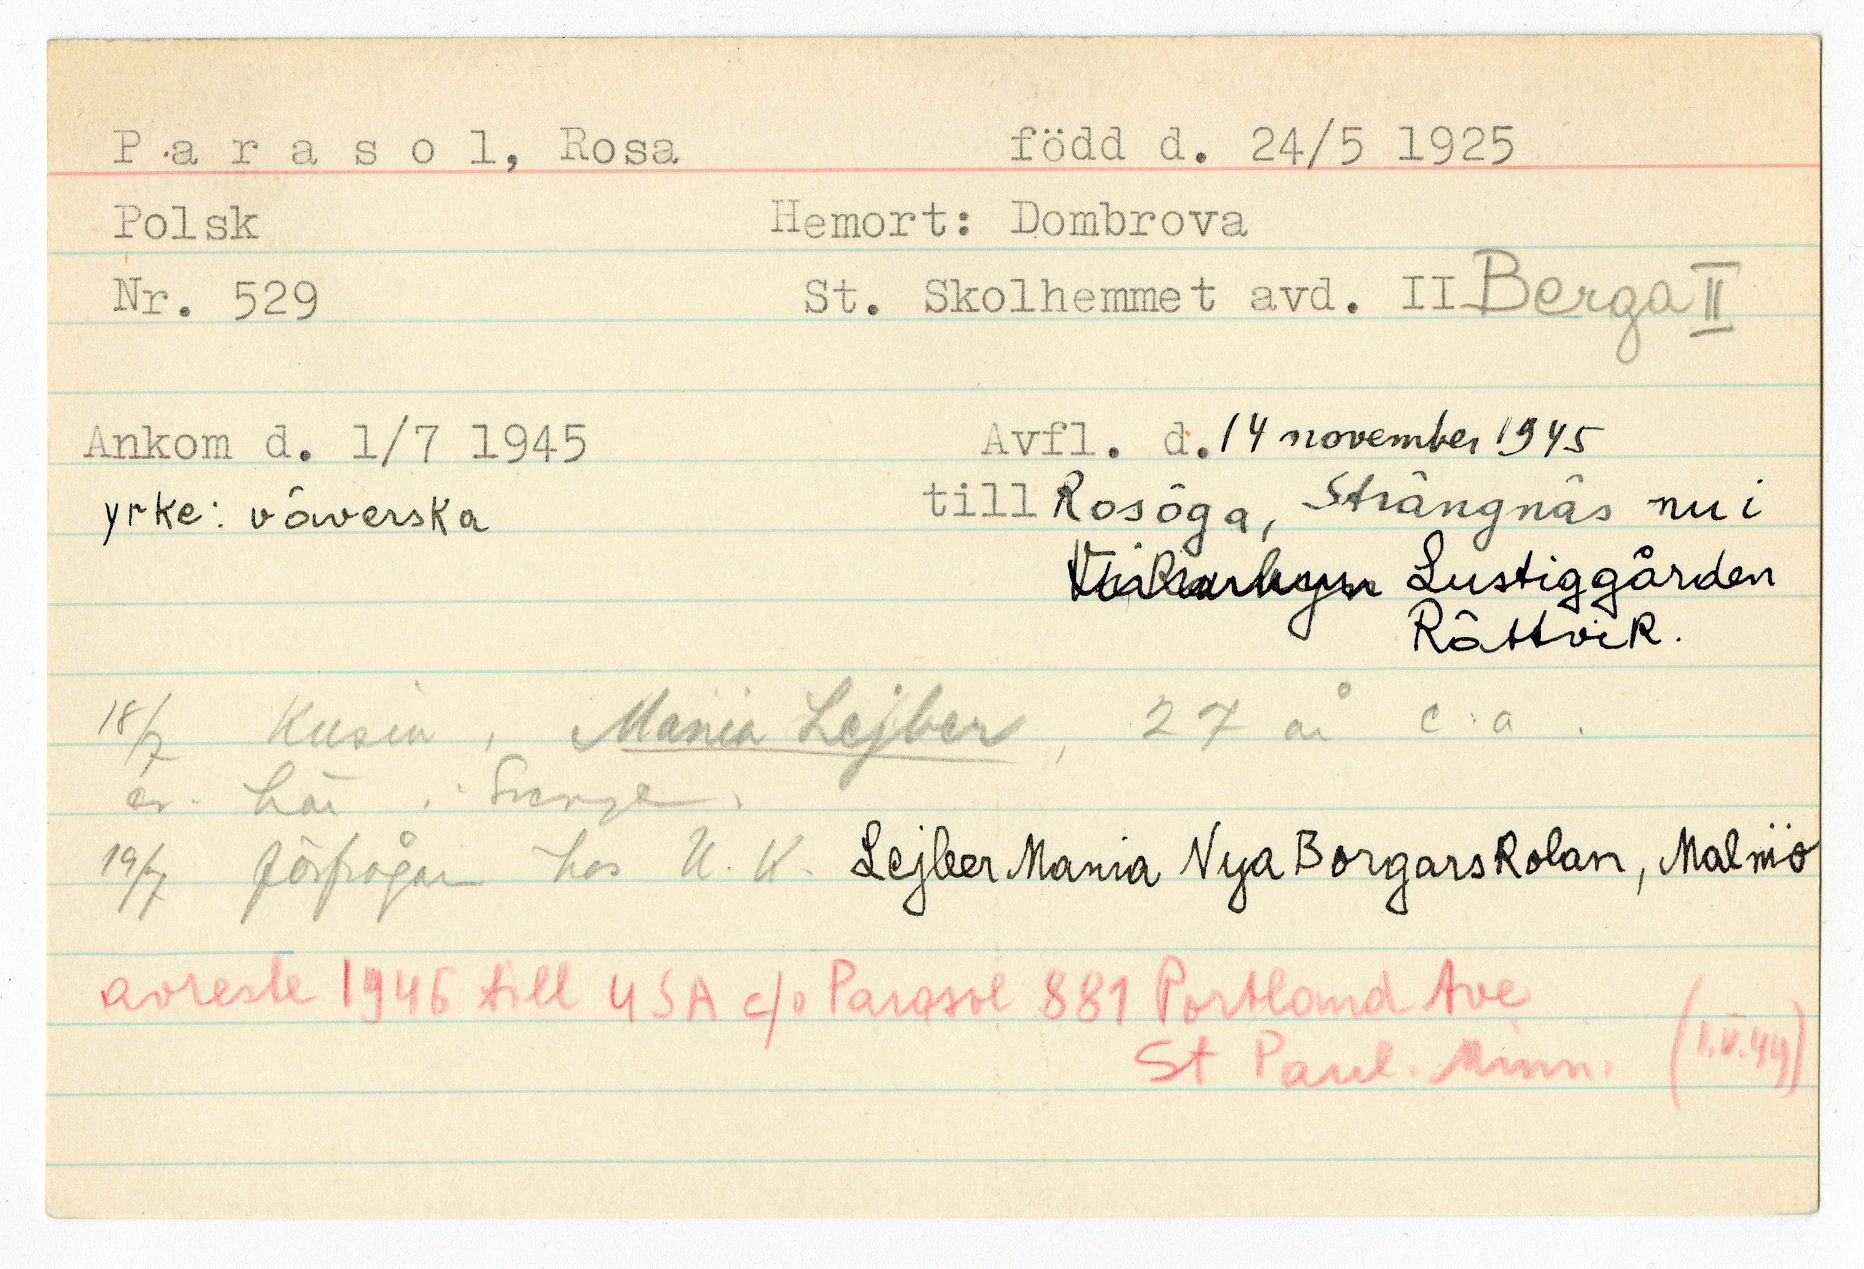 P a r a s o l, Rosa född d. 24/5 1925
Polsk Hemort: Dombrova
Nr. 529 St. Skolhemmet avd. II Berga II
Ankom d. 1/7 1945 Avfl. d. 14 november 1945
yrke: väverska till Rosöga, Strängnäs nu i
Lustiggården
Rättvik.
18/7 Kusin, Mania Lejber, 27 år c:a.
är här i Sverge.
19/7 förfrågan hos U.K. Lejber Mania Nya Borgarskolan, Malmö
avreste 1946 till USA c/o Parasol 881 Portland Ave
St Paul. Minn. (1.V.49)